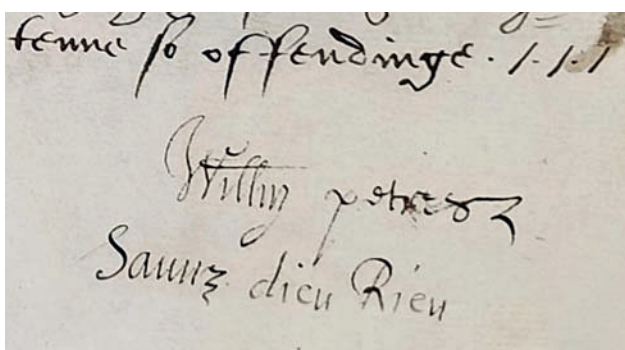 tenne so offendinge. /././
Willm petre
Saunz dieu Rien